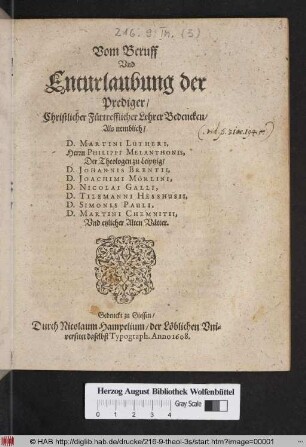 216. 9. Th. (3)
Vom Beruff
Und
Enturlaubung der
Prediger/
Christlicher Fürtrefflicher Lehrer Bedencken/
Als nemblich/
D. MARTINI LUTHERI,
Herrn PHILIPPI MELANTHONIS,
Der Theologen zu Leipzig/
D. JOHANNIS BRENTII,
D. JOACHIMI MÖRLINI,
D. NICOLAI GALLI,
D. TILEMANNI HESHUSII,
D. SIMONIS PAULI,
D. MARTINI CHEMNITII,
Und etlicher Alten Vätter.
Gedruckt zu Giessen/
Durch Nicolaum Hampelium/ der Löblichen Uni-
versitet daselbst Typograph. Anno 1608.
Herzog August Bibliothek Wolfenbüttel
0 1 2 3 4
Gray Scale
© HAB http://diglib.hab.de/drucke/216-9-theol-3s/start.htm?image=00001